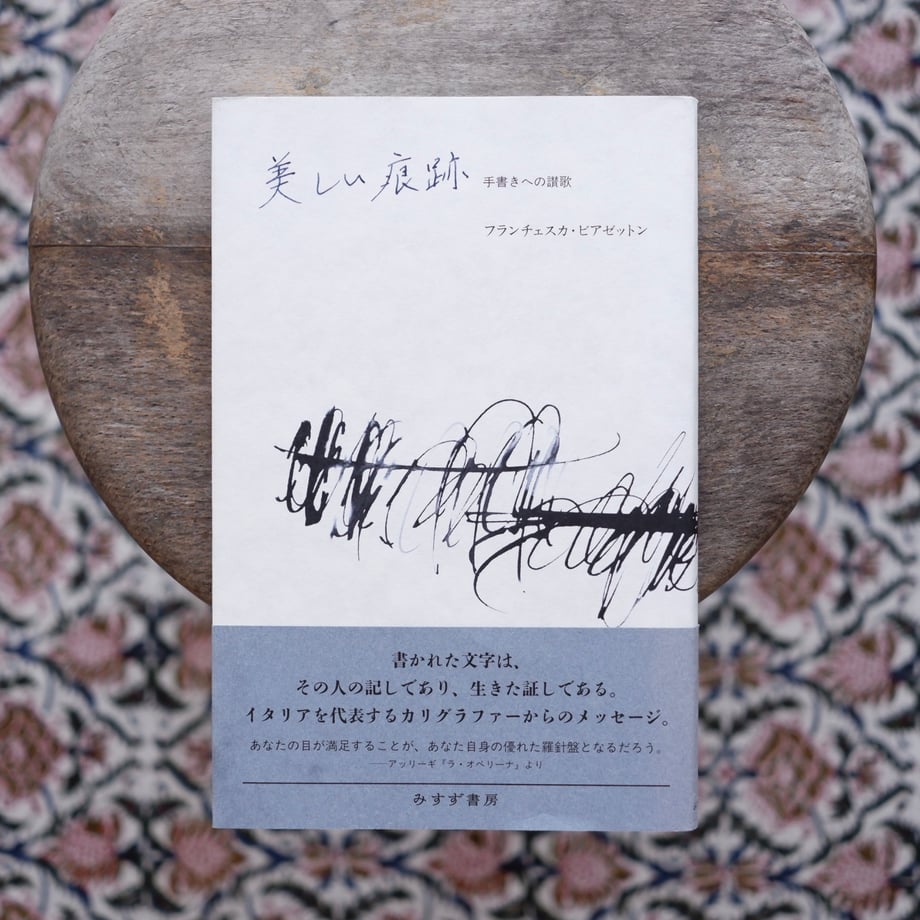 美しい痕跡 手書きへの讃歌
フランチェスカ・ビアゼットン
書かれた文字は、
その人の記しであり、生きた証しである。
イタリアを代表するカリグラファーからのメッセージ。
あなたの目が満足することが、あなた自身の優れた羅針盤となるだろう。
——アッリーギ『ラ・オペリーナ』より
みすず書房